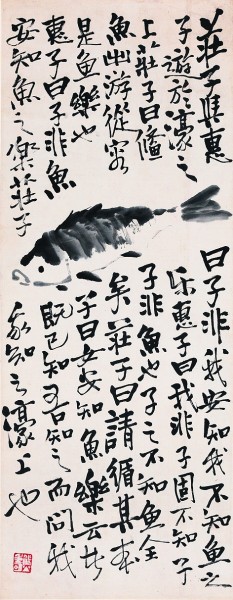 莊子與惠
子遊於濠之
上莊子曰儵
魚出游從容
是鱼樂也
惠子曰子非魚
安知魚之樂莊子
曰子非我安知我不知鱼之
乐惠子曰我非子固不知子
子非鱼也子之不知鱼全
矣莊子曰請循其本
子曰女安知鱼樂云者
既已知吾知之而問我
我知之濠上也